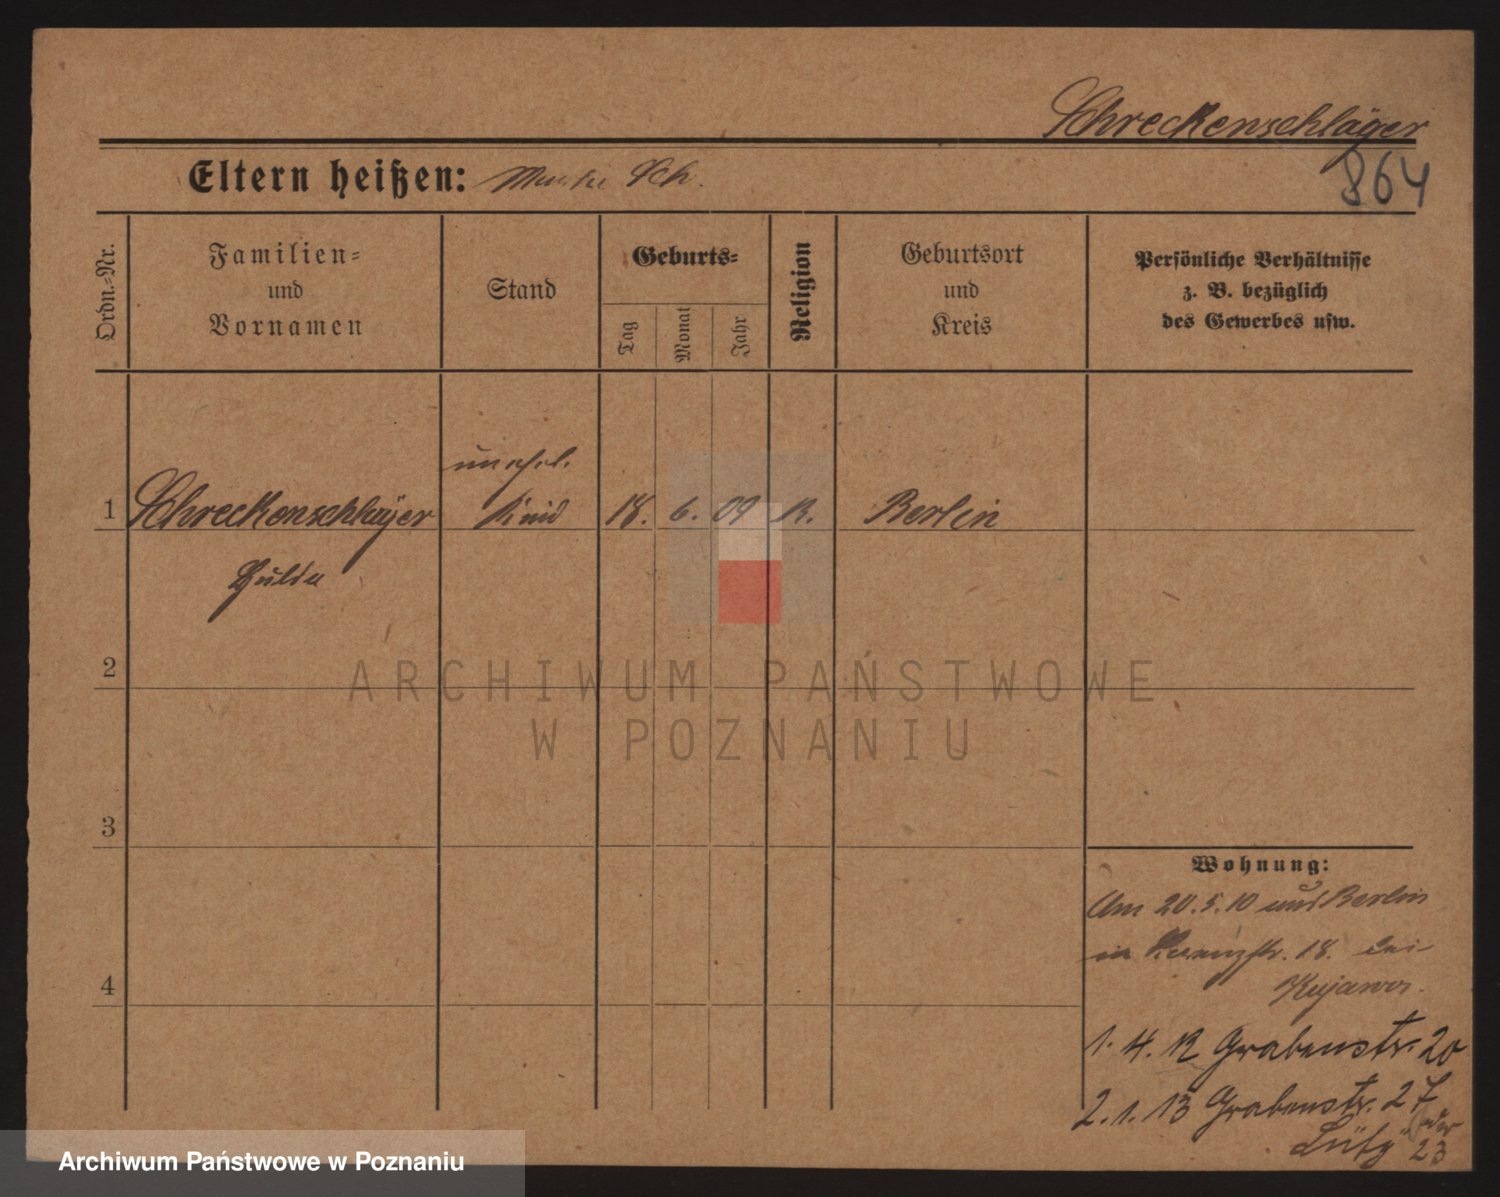 Schreckenschläger
864
Eltern heißen: Sch.
Ordn.=Nr.
Familien=
und
Vornamen
Stand
Geburts=
Tag
Monat
Jahr
Religion
Geburtsort
und
Kreis
Persönliche Verhältnisse
z. B. bezüglich
des Gewerbes usw.
unehel.
1 Schreckenschläger Kind 18. 6. 09 K. Berlin
Hulda
2
3
4
Wohnung:
Am 20.5.10 aus Berlin
in 18. bei
Kujawa.
1. 4. 12 Grabenstr. 20
2. 1. 13 Grabenstr. 27
oder
23
ARCHIWUM PAŃSTWOWE
W POZNANIU
Archiwum Państwowe w Poznaniu